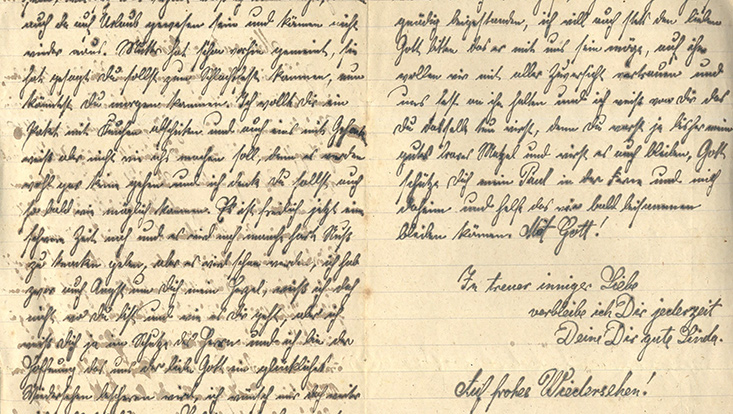 auch da auf Urlaub gewesen sein und können nicht
wieder raus. Mutter hat schon vorhin gemeint, sie
hat gesagt du sollst zum Schlachtfest kommen, nun
könntest Du morgen kommen. Ich wollte Dir ein
Paket mit Kuchen abschicken und auch eins mit
weiß aber nicht wie ichs machen soll, denn es werden
wohl gar keine gehen und ich denke du sollst auch
so bald wie möglich kommen. Es ist freilich jetzt eine
schwere Zeit noch und es wird noch manche harte Nuß
zu knacken geben, aber es wird schon werden, ich hab
zwar auch Angst um Dich mein weiß ich doch
nicht wo du bist und wie es Dir geht, aber ich
weiß Dich ja im Schutze des Herrn und ich bin der
Hoffnung das uns der liebe Gott ein glückliches
Wiedersehen bescheren wird, ich wünsch mir doch weiter
gnädig beigestanden, ich will auch stets den lieben
Gott bitten das er mit uns sein möge, auf ihn
wollen wir mit aller Zuversicht vertrauen und
uns fest an ihn halten und ich weiß von Dir das
Du dasselbe tun wirst, denn du warst ja bisher mein
gutes und wirst es auch bleiben, Gott
schütze Dich mein Paul in der Ferne und mich
daheim und helf das wir bald beisammen
bleiben können. Mit Gott!
In treuer inniger Liebe
verbleibe ich Dir jederzeit
Deine Dir gute Linda.
Auf frohes Wiedersehen!